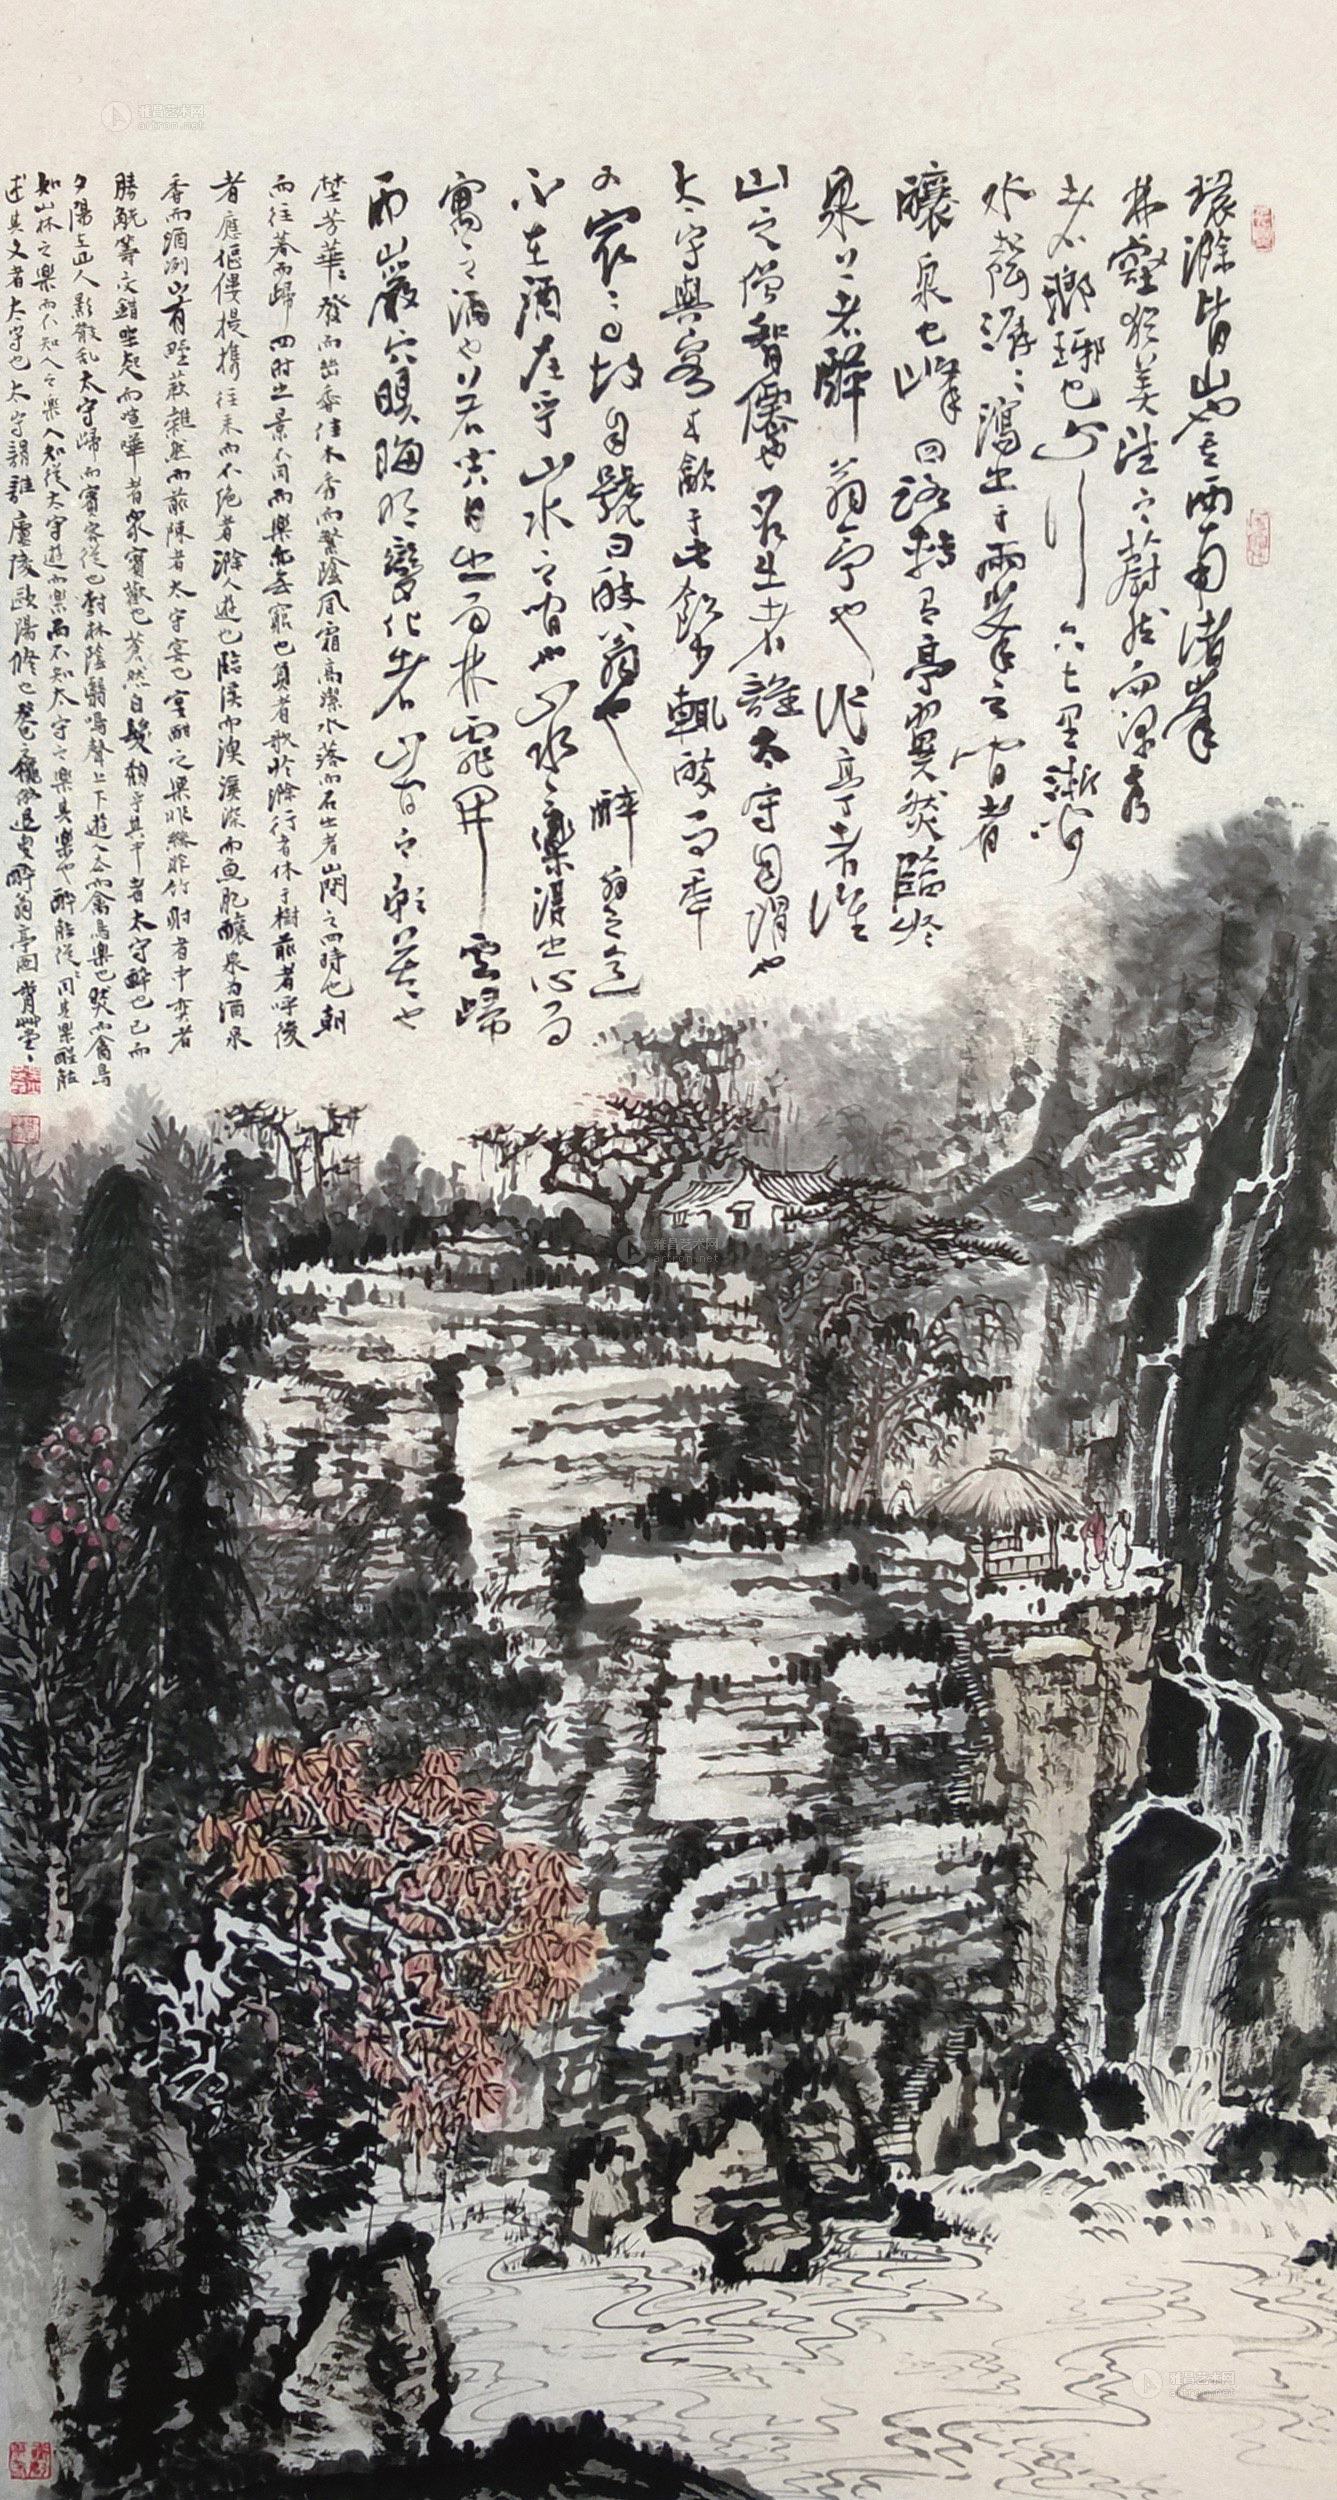 環滁皆山也其西南諸峯
林壑猶美望之蔚然而深秀
者瑯琊也山行六七里漸聞
水聲潺潺瀉出于兩峯之間者
釀泉也峰回路轉有亭翼然臨於
泉上者醉翁亭也作亭者誰
山之僧智僊也名之者誰太守自謂也
太守與客來飲于此飲少輒醉而年
又最高故自號曰醉翁也醉翁之意
不在酒在乎山水之間也山水之樂得之心而
寓之酒也若夫日出而林霏開雲歸
而山巖穴暝晦明變化者山間之朝暮也
埜芳華發而幽香佳木秀而繁陰風霜高潔水落而石出者山間之四時也朝
而往暮而歸四時之景不同而樂亦無窮也負者歌於滁行者休于樹前者呼後
者應傴僂提攜往來而不絕者滁人遊也臨溪而漁溪深而魚肥釀泉为酒泉
香而酒洌山肴埜蔌雜然而前陳者太守宴也宴酣之樂非絲非竹射者中奕者
勝觥籌交錯坐起而喧嘩者衆賓歡也蒼然白髮頹乎其中者太守醉也已而
夕陽在山人影散乱太守歸而賓客從也樹林陰翳鳴聲上下遊人去而禽鳥樂也然而禽鳥
知山林之樂而不知人之樂人知從太守遊而樂而不知太守之樂其樂也醉能從同其樂醒能
述其文者太守也太守謂誰廬陵歐陽修也 醉翁亭図
雅昌艺术网
artron.net
雅昌艺术网
artron.net
雅昌艺术网
artron.net